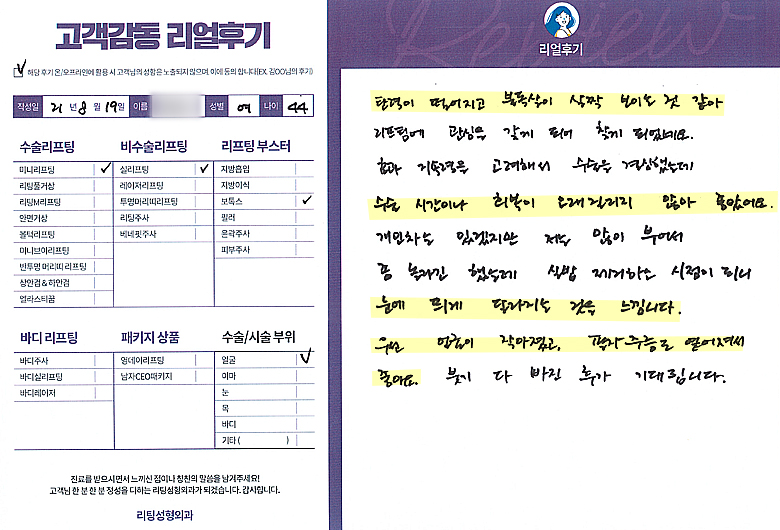 고객감동 리얼후기
해당 후기 온/오프라인에 활용 시 고객님의 성함은 노출되지 않으며, 이에 동의 합니다(EX. 김OO님의 후기)
작성일 21 년 8 월 19일 이름 성별 여 나이 44
수술리프팅
미니리프팅
리팅풀거상
리팅M리프팅
안면거상
볼턱리프팅
미니브이리프팅
빈투명 머리띠 리프팅
상안검 & 하안검
얼라스티꿈
비수술리프팅
실리프팅
레이저리프팅
투명머리띠리프팅
리팅주사
베네핏주사
리프팅 부스터
지방흡입
지방이식
보톡스
필러
윤곽주사
피부주사
바디 리프팅
바디주사
바디실리프팅
바디레이저
패키지 상품
원데이리프팅
남자CEO패키지
수술/시술 부위
얼굴
이마
눈
목
바디
기타 ( )
진료를 받으시면서 느끼신 점이나 칭찬의 말씀을 남겨주세요!
고객님 한 분 한 분 정성을 더하는 리팅성형외과가 되겠습니다. 감사합니다.
리팅성형외과
Review
리얼후기
탄력이 떨어지고 불독살이 살짝 보이는 것 같아
리프팅에 관심을 갖게 되어 찾게 되었네요.
효과 지속력을 고려해서 수술을 결정했는데
수술 시간이나 회복이 오래걸리지 않아 좋았어요.
개인차는 있겠지만 저는 많이 부어서
좀 놀라긴 했는데 실밥 제거하는 시점이 되니
눈에 띄게 달라지는 것을 느낍니다.
우선 얼굴이 작아졌고, 팔자주름도 옅어져서
좋아요. 붓기 다 빠진 후가 기대됩니다.